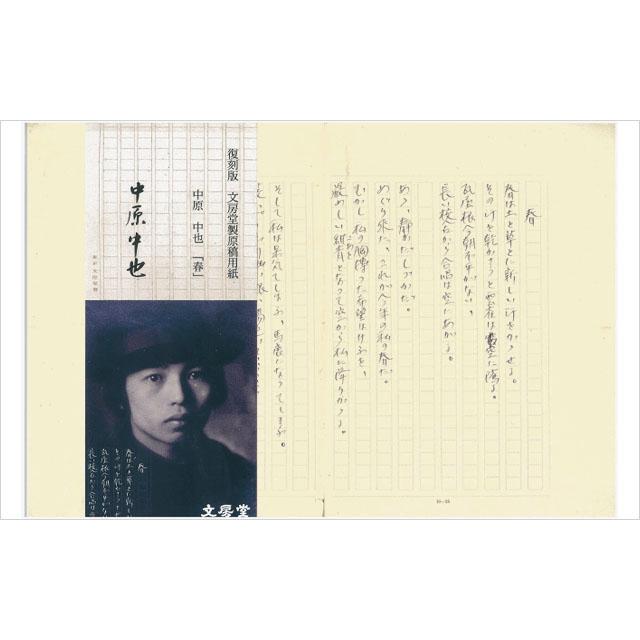 春
春は土と草とに新しい汗をかゝせる。
その汗を乾かさうと、雲雀は空に隲る。
瓦屋根今朝不平がない。
長い校舎から合唱は空にあがる。
あゝ、静かだしづかだ。
めぐり来た、これが今年の私の春だ。
むかし私の胸摶つた希望はけふを、
厳めしい紺青となつて空から私に降りかゝる。
そして私は呆気てしまふ、馬鹿になつてしまふ。
復刻版 文房堂製原稿用紙
中原 中也「春」
中原中也
春
春は土と草とに新しい
その汗を乾かさうと
瓦屋根今朝不平がな
長い校舎から合唱は
文房堂
10–25